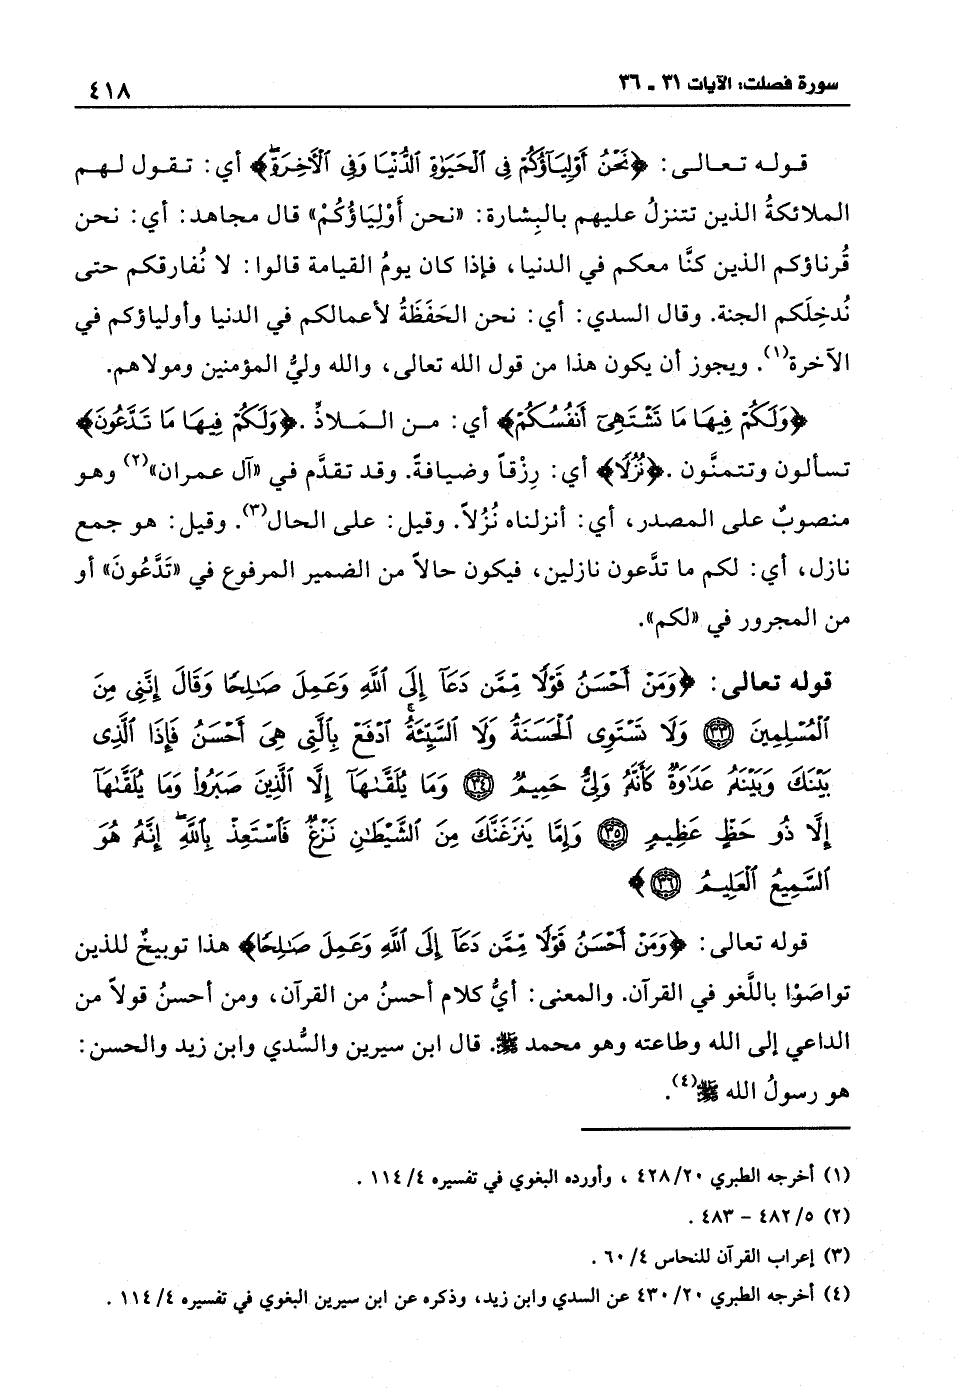 سورة فصلت: الآيات ٣١ - ٣٦
٤١٨
قوله تعالى: ﴿نَحْنُ أَوْلِيَآؤُكُمْ فِى ٱلْحَيَوٰةِ ٱلدُّنْيَا وَفِى ٱلْأَخِرَةِۖ﴾ أي: تقول لهم
الملائكةُ الذين تتنزلُ عليهم بالبِشارة: «نحن أَوْلِيَاؤُكُمْ» قال مجاهد: أي: نحن
قُرناؤكم الذين كنَّا معكم في الدنيا، فإذا كان يومُ القيامة قالوا: لا نُفارقكم حتى
نُدخِلَكم الجنة. وقال السدي: أي: نحن الحَفَظَةُ لأعمالكم في الدنيا وأولياؤكم في
الآخرة(١). ويجوز أن يكون هذا من قول الله تعالى، والله وليُّ المؤمنين ومولاهم.
﴿وَلَكُمْ فِيهَا مَا تَشْتَهِىٓ أَنفُسُكُمْ﴾ أي: من المَلاذِّ. ﴿وَلَكُمْ فِيهَا مَا تَدَّعُونَ﴾
تسألون وتتمنَّون. ﴿نُزُلًا﴾ أي: رِزْقاً وضيافةً. وقد تقدَّم في «آل عمران»(٢) وهو
منصوبٌ على المصدر، أي: أنزلناه نُزُلاً. وقيل: على الحال(٣). وقيل: هو جمع
نازل، أي: لكم ما تدَّعون نازلين، فيكون حالاً من الضمير المرفوع في «تَدَّعُونَ» أو
من المجرور في «لكم».
قوله تعالى: ﴿وَمَنْ أَحْسَنُ قَوْلًا مِّمَّن دَعَآ إِلَى ٱللَّهِ وَعَمِلَ صَٰلِحًا وَقَالَ إِنَّنِى مِنَ
ٱلْمُسْلِمِينَ ٣٣ وَلَا تَسْتَوِى ٱلْحَسَنَةُ وَلَا ٱلسَّيِّئَةُۚ ٱدْفَعْ بِٱلَّتِى هِىَ أَحْسَنُ فَإِذَا ٱلَّذِى
بَيْنَكَ وَبَيْنَهُۥ عَدَٰوَةٌ كَأَنَّهُۥ وَلِىٌّ حَمِيمٌ ٣٤ وَمَا يُلَقَّىٰهَآ إِلَّا ٱلَّذِينَ صَبَرُوا۟ وَمَا يُلَقَّىٰهَآ
إِلَّا ذُو حَظٍّ عَظِيمٍ ٣٥ وَإِمَّا يَنزَغَنَّكَ مِنَ ٱلشَّيْطَٰنِ نَزْغٌ فَٱسْتَعِذْ بِٱللَّهِۖ إِنَّهُۥ هُوَ
ٱلسَّمِيعُ ٱلْعَلِيمُ ٣٦﴾
قوله تعالى: ﴿وَمَنْ أَحْسَنُ قَوْلًا مِّمَّن دَعَآ إِلَى ٱللَّهِ وَعَمِلَ صَٰلِحًا﴾ هذا توبيخٌ للذين
تواصَوْا باللَّغو في القرآن. والمعنى: أيُّ كلام أحسنُ من القرآن، ومن أحسنُ قولاً من
الداعي إلى الله وطاعته وهو محمد ﷺ. قال ابن سيرين والسُّدي وابن زيد والحسن:
هو رسولُ الله ﷺ(٤).
(١) أخرجه الطبري ٢٠/ ٤٢٨ ، وأورده البغوي في تفسيره ٤/ ١١٤ .
(٢) ٥/ ٤٨٢ – ٤٨٣ .
(٣) إعراب القرآن للنحاس ٤/ ٦٠ .
(٤) أخرجه الطبري ٢٠/ ٤٣٠ عن السدي وابن زيد، وذكره عن ابن سيرين البغوي في تفسيره ٤/ ١١٤ .